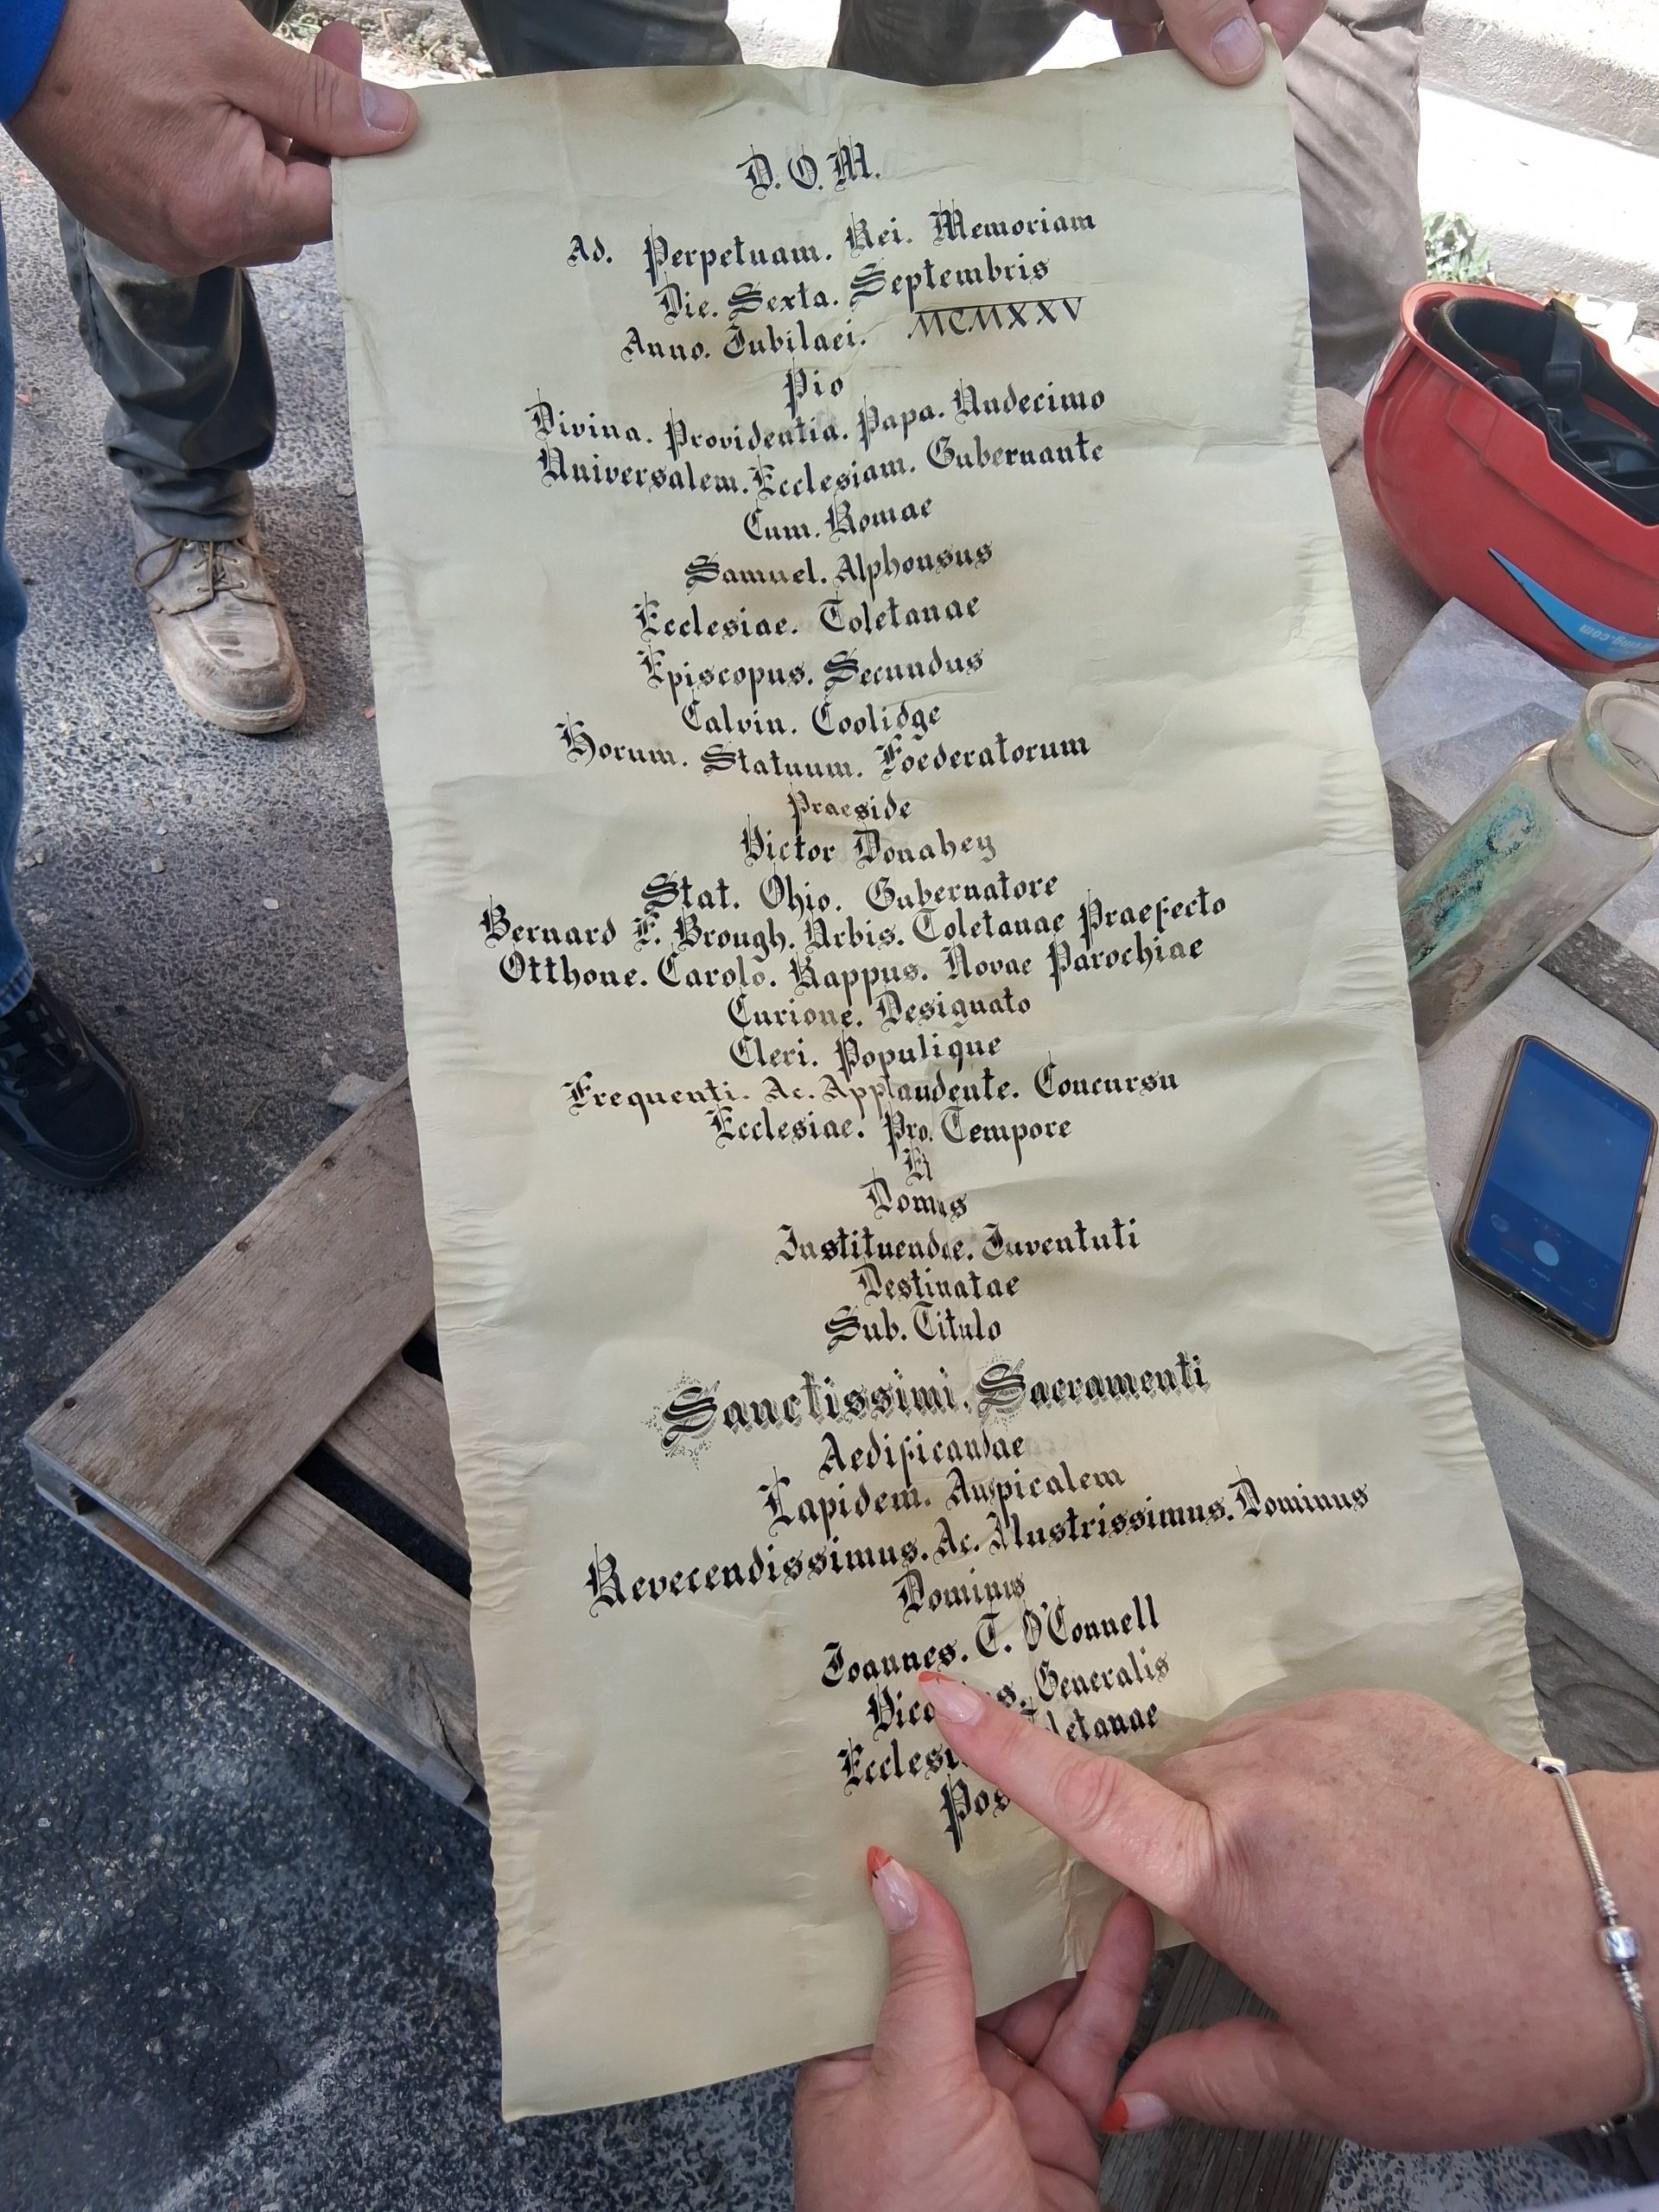 D. O. M.
Ad. Perpetuam. Rei. Memoriam
Die. Sexta. Septembris
Anno. Iubilaei. MCMXXV
Pio
Divina. Providentia. Papa. Undecimo
Universalem. Ecclesiam. Gubernante
Cum. Romae
Samuel. Alphonsus
Ecclesiae. Toletanae
Episcopus. Secundus
Calvin. Coolidge
Horum. Statuum. Foederatorum
Praeside
Victor Donahey
Stat. Ohio. Gubernatore
Bernard F. Brough. Urbis. Toletanae Praefecto
Otthone. Carolo. Kappus. Novae Parochiae
Curione. Designato
Cleri. Populique
Frequenti. Ac. Applaudente. Concursu
Ecclesiae. Pro. Tempore
Et
Domus
Instituendae. Iuventuti
Destinatae
Sub. Titulo
Sanctissimi. Sacramenti
Aedificandae
Lapidem. Auspicalem
Reverendissimus. Ac. Illustrissimus. Dominus
Dominus
Ioannes. T. O'Connell
Generalis